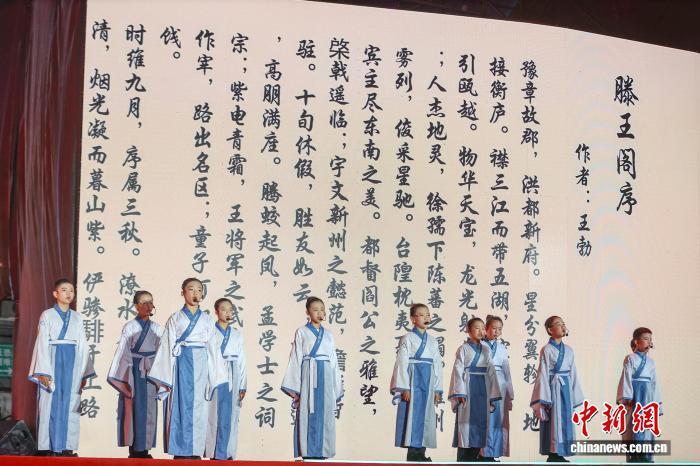 滕王阁序
作者：王勃
豫章故郡，洪都新府。星分翼轸，地
接衡庐。襟三江而带五湖，
引瓯越。物华天宝，龙光射
；人杰地灵，徐孺下陈蕃之榻，州
雾列，俊采星驰。台隍枕夷
宾主尽东南之美。都督阎公之雅望，
棨戟遥临；宇文新州之懿范，
驻。十旬休假，胜友如云
，高朋满座。腾蛟起凤，孟学士之词
宗；紫电青霜，王将军之武
作宰，路出名区；童子
饯。
时维九月，序属三秋。潦水
清，烟光凝而暮山紫。俨骖騑于上路
中新网
www.chinanews.com